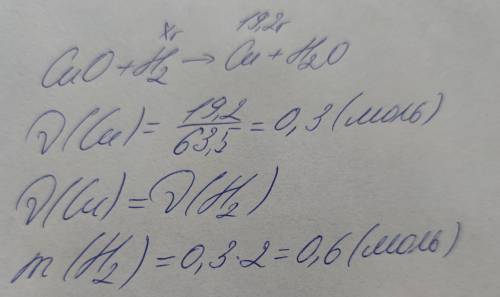 xг 19,2г
CuO + H₂ → Cu + H₂O
ν(Cu) = 19,2/63,5 = 0,3 (моль)
ν(Cu) = ν(H₂)
m(H₂) = 0,3 · 2 = 0,6 (моль)